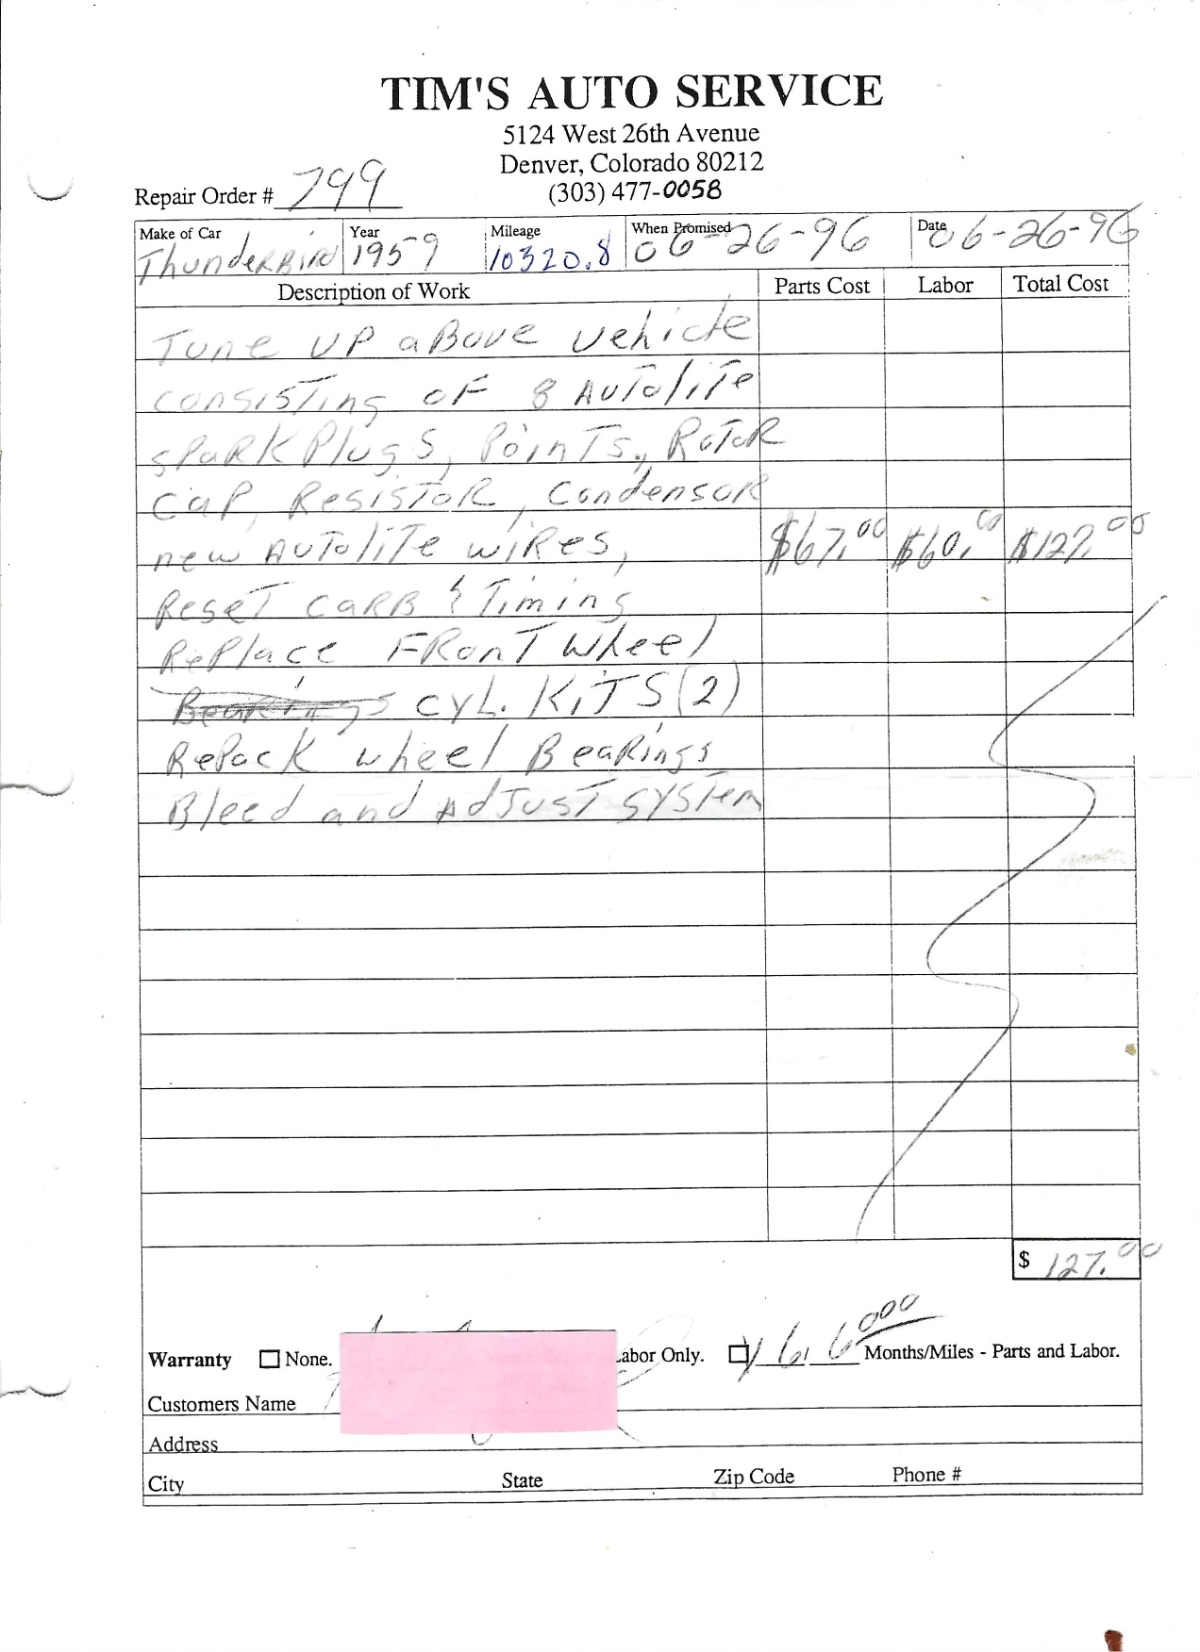 TIM'S AUTO SERVICE
5124 West 26th Avenue
Denver, Colorado 80212
(303) 477-0058
Repair Order # 799
Make of Car Year Mileage When Promised Date
ThundeRBiRd 1959 10320.8 06-26-96 06-26-96
Description of Work Parts Cost Labor Total Cost
Tune UP aBove vehicle
consisTing oF 8 AuToliTe
sPaRKPlugS, PoinTs, RoToR
CaP, ResisToR, CondensoR
new AuToliTe wiRes, $67.00 $60.00 $127.00
ReseT caRB & Timing
RePlace FRonT wheel
BeaRings cyl. KiTS (2)
RePack wheel BeaRings
Bleed and AdJusT sysTem
$ 127.00
Warranty None. Labor Only. 6 Months/Miles - Parts and Labor.
Customers Name
Address
City State Zip Code Phone #